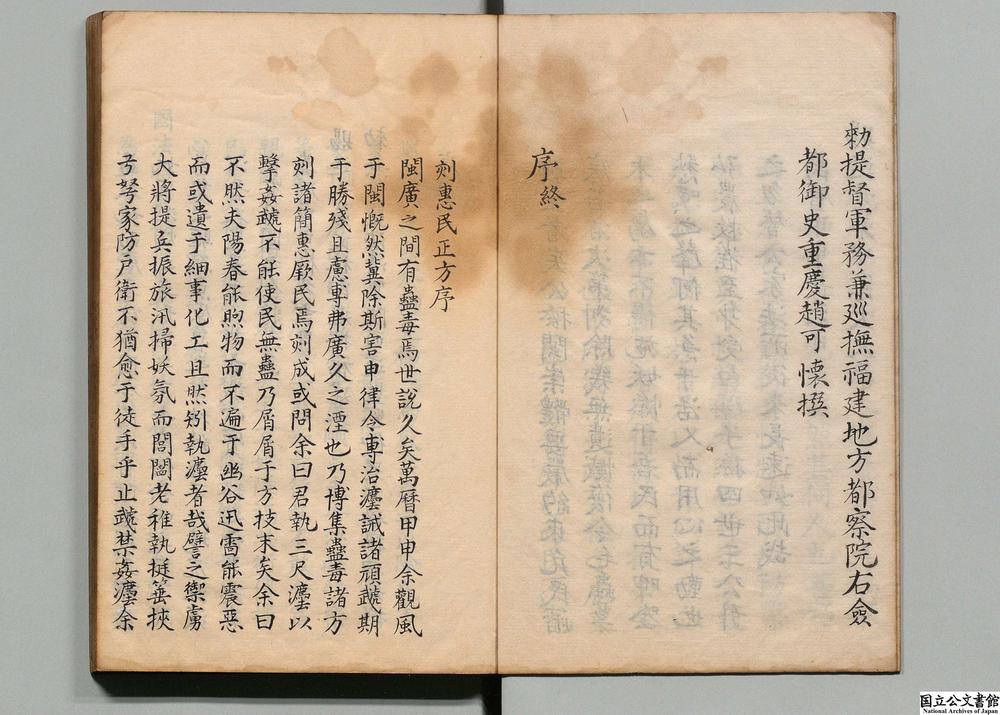 勑提督軍務兼廵撫福建地方都察院右僉
都御史重慶趙可懷撰
序終
刻惠民正方序
閩廣之間有蠱毒焉世說久矣萬曆甲申余觀風
于閩慨然冀除斯害申律令專治灋誡諸頑虣期
于勝殘且慮專弗廣久之湮也乃博集蠱毒諸方
刻諸簡惠厥民焉刻成或問余曰君執三尺灋以
擊姦虣不能使民無蠱乃屑屑于方技末矣余曰
不然夫陽春能煦物而不遍于幽谷迅雷能震惡
而或遺于細事化工且然矧執灋者哉譬之禦虜
大將提兵振旅汛掃妖氛而閭闔老稚執挺箠挾
弓弩家防戶衛不猶愈于徒手乎止虣禁姦灋余
国立公文書館
National Archives of Japan